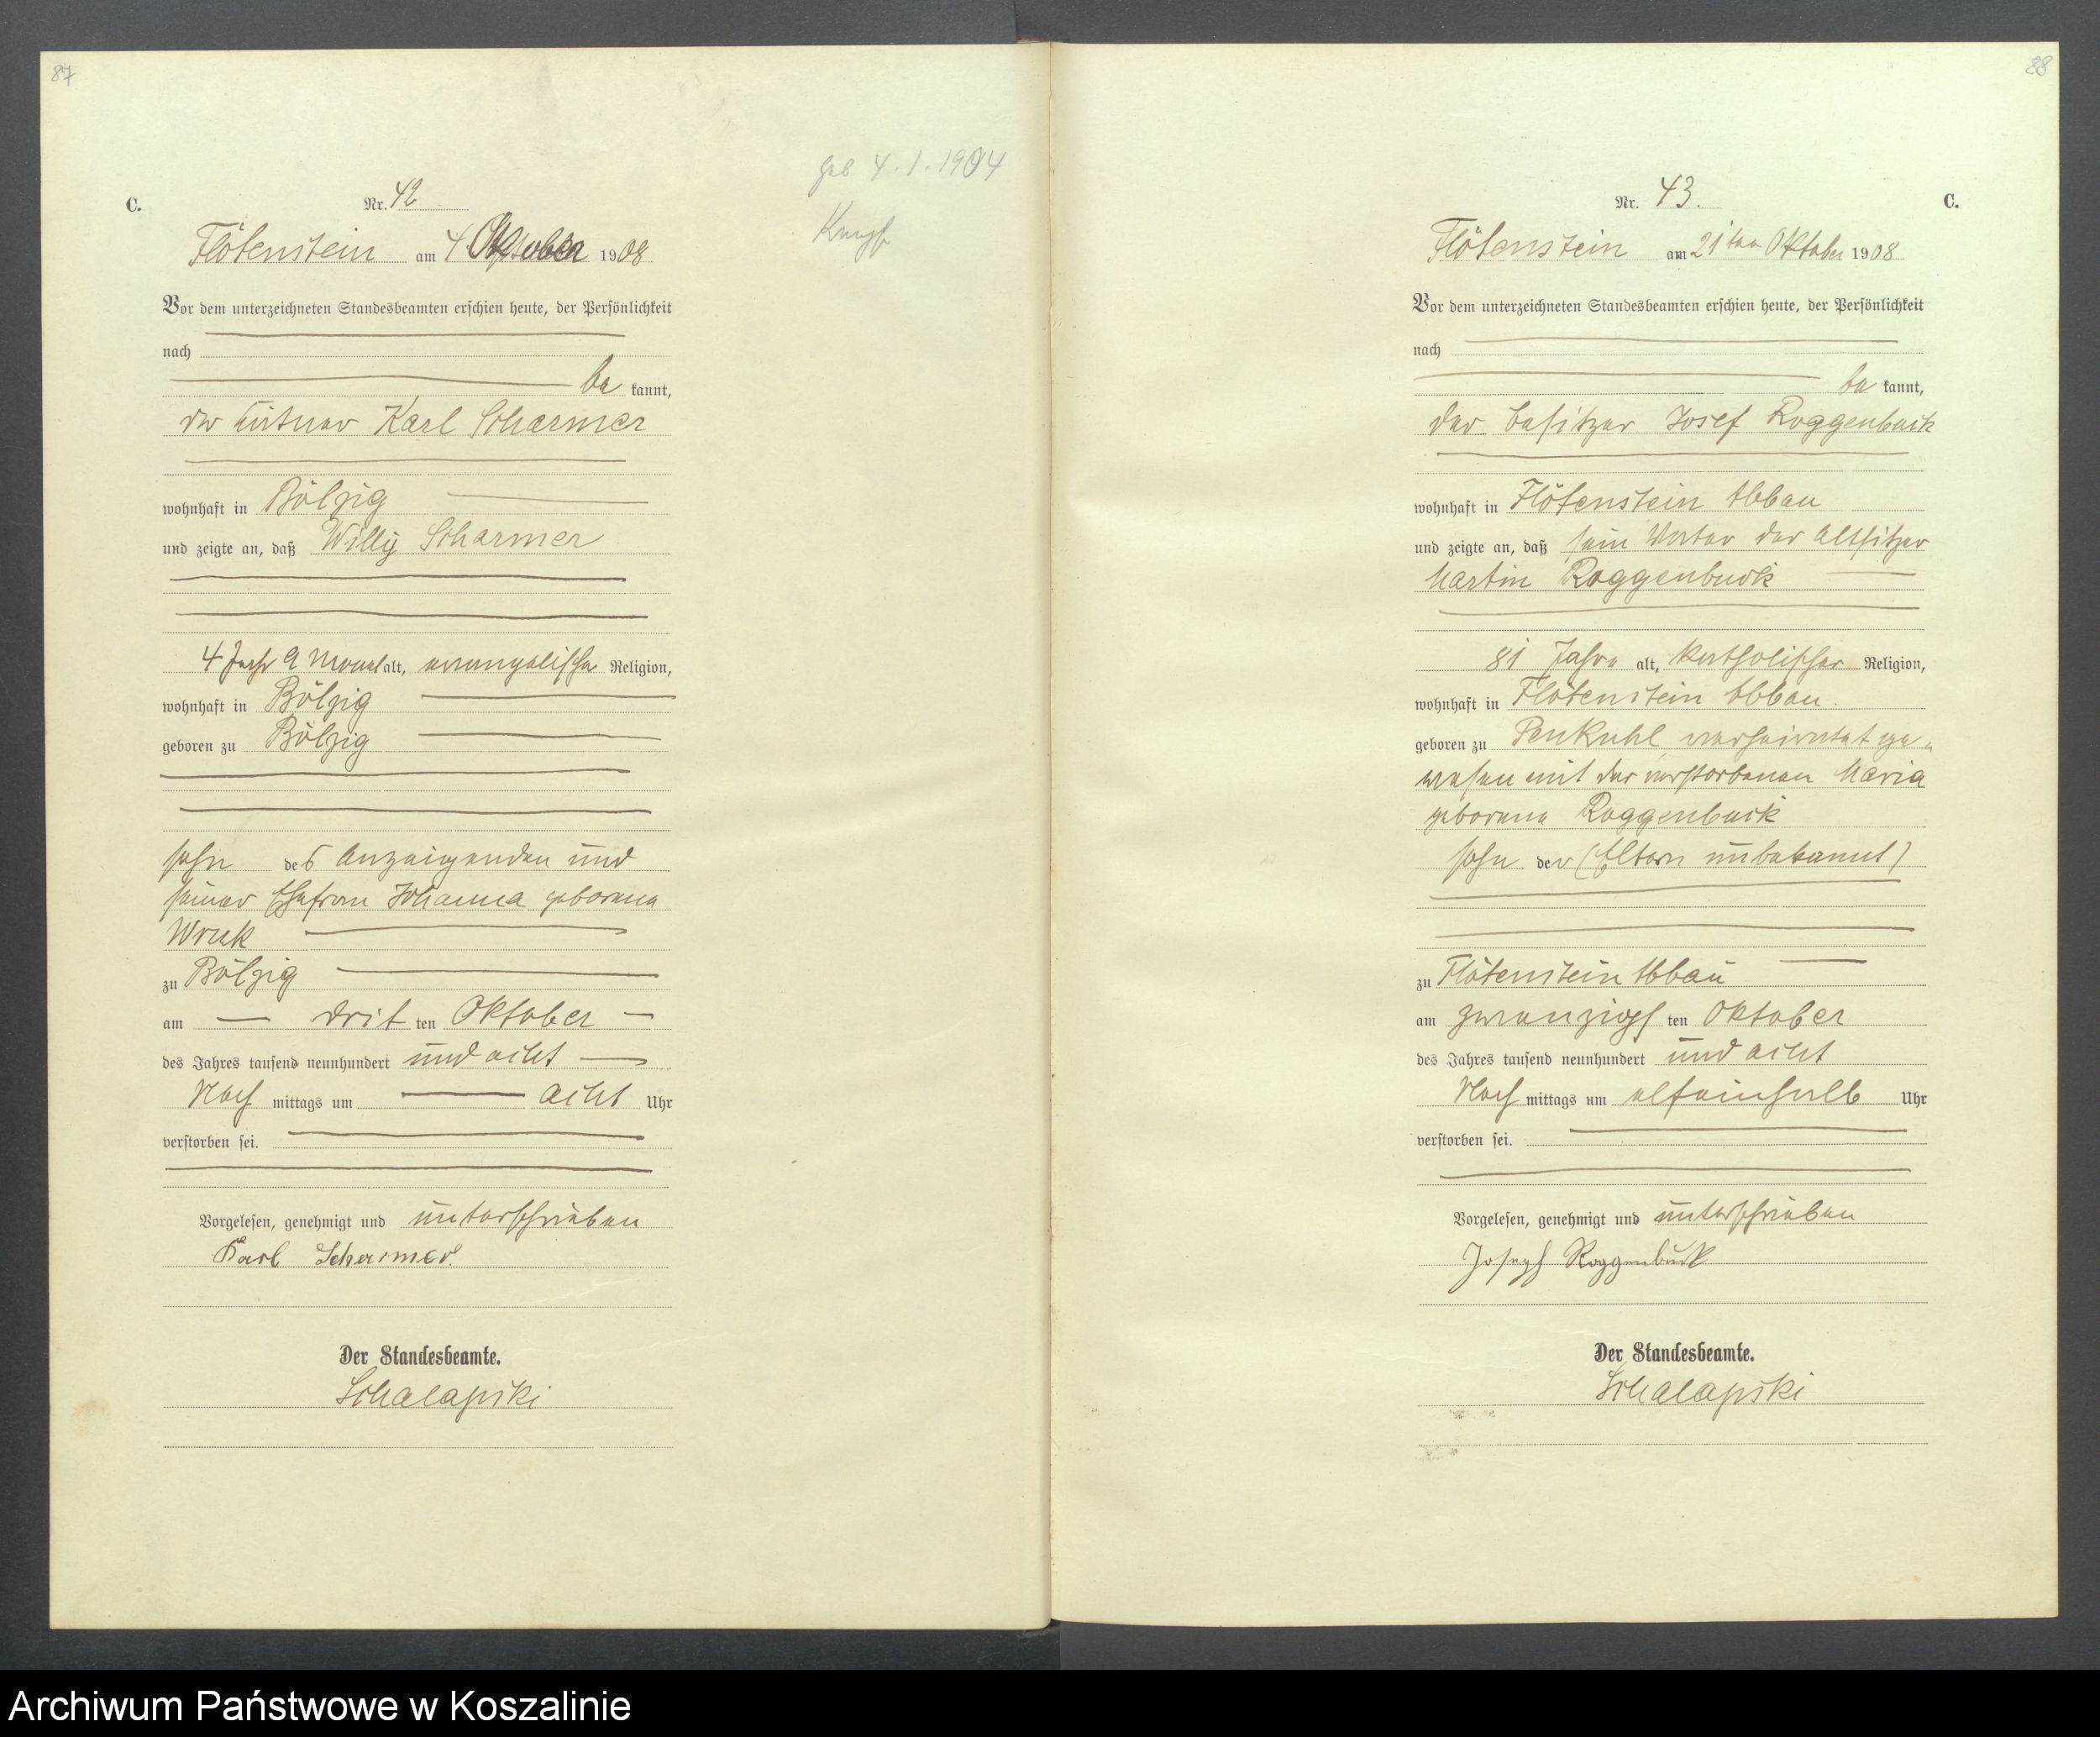 87
geb 4.1.1904
C.
Nr. 42
Flötenstein am 4 Oktober 1908
Vor dem unterzeichneten Standesbeamten erschien heute, der Persönlichkeit
nach
be kannt,
der Karl Scharmer
wohnhaft in Bölzig
und zeigte an, daß Willy Scharmer
4 Jahr 9 Monat alt, evangelischer Religion,
wohnhaft in Bölzig
geboren zu Bölzig
Sohn des Anzeigenden und
seiner Ehefrau Johanna geborene
Wruk
zu Bölzig
am drit ten Oktober
des Jahres tausend neunhundert und acht
Nach mittags um acht Uhr
verstorben sei.
Vorgelesen, genehmigt und unterschrieben
Karl Scharmer.
Der Standesbeamte.
Schalapski
88
Nr. 43.
C.
Flötenstein am 21ten Oktober 1908
Vor dem unterzeichneten Standesbeamten erschien heute, der Persönlichkeit
nach
be kannt,
der Besitzer Josef Roggenbuck
wohnhaft in Flötenstein Abbau
und zeigte an, daß sein Vater der Altsitzer
Martin Roggenbuck
81 Jahre alt, katholischer Religion,
wohnhaft in Flötenstein Abbau.
geboren zu Penkuhl verheiratet ge-
wesen mit der verstorbenen Maria
geborene Roggenbuck
Sohn der (Eltern unbekannt)
zu Flötenstein Abbau
am zwanzigs ten Oktober
des Jahres tausend neunhundert und acht
Nach mittags um elfeinhalb Uhr
verstorben sei.
Vorgelesen, genehmigt und unterschrieben
Joseph Roggenbuck
Der Standesbeamte.
Schalapski
Archiwum Państwowe w Koszalinie